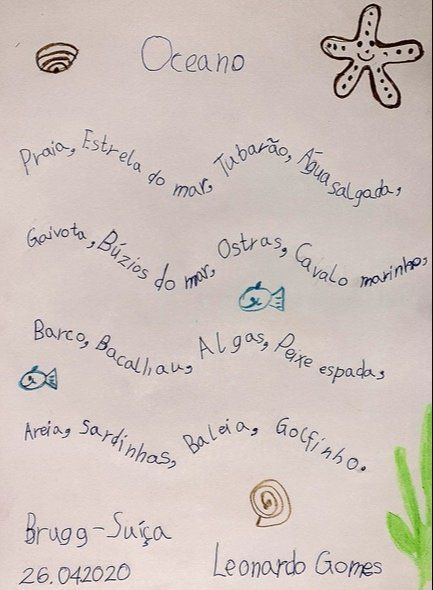 Oceano
Praia, Estrela do mar, Tubarão, Água salgada,
Gaivota, Búzios do mar, Ostras, Cavalo marinho,
Barco, Bacalhau, Algas, Peixe espada,
Areia, Sardinhas, Baleia, Golfinho.
Brugg-Suíça
26.042020
Leonardo Gomes